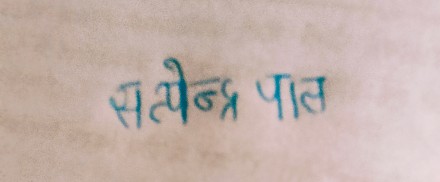 सत्येन्द्र पाल